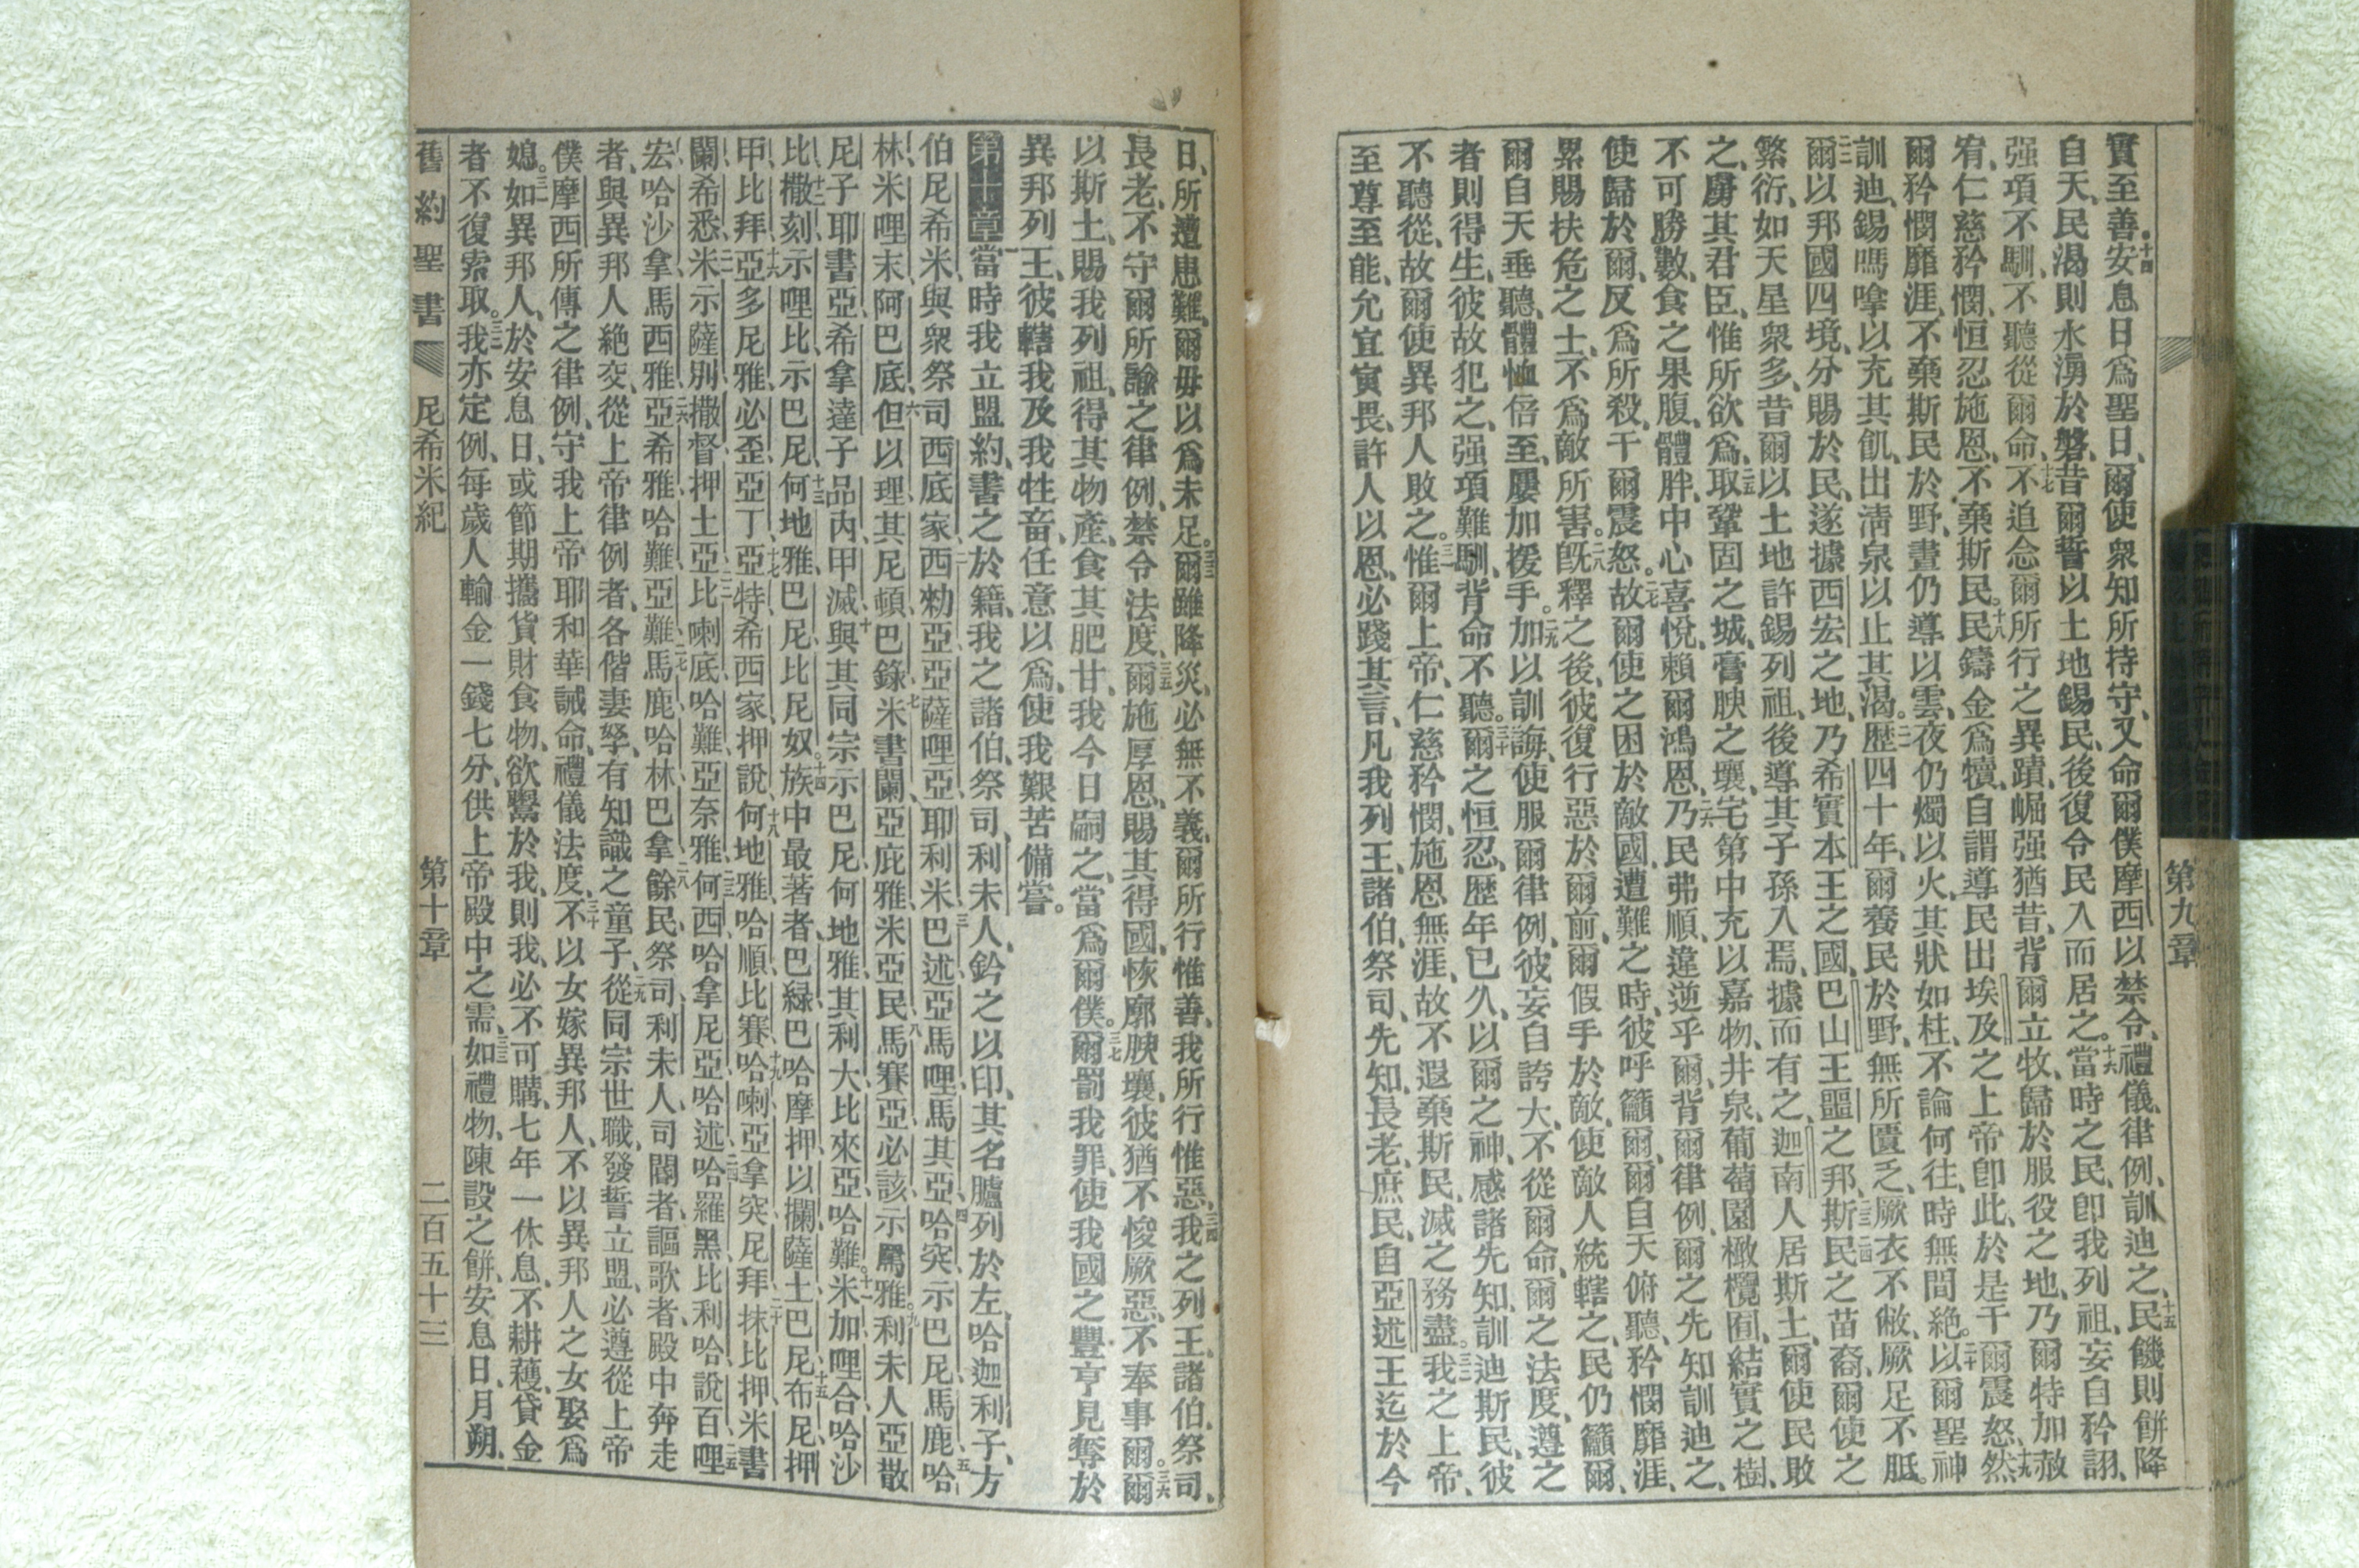 第九章
實至善、十四安息日爲聖日、爾使衆知所持守、又命爾僕摩西以禁令、禮儀、律例、訓迪之、十五民饑則餅降
自天、民渴則水湧於磐、昔爾誓以土地錫民、後復令民入而居之。十六當時之民、卽我列祖、妄自矜詡、
强項不馴、不聽從爾命、十七不追念爾所行之異蹟、崛强猶昔、背爾立牧、歸於服役之地、乃爾特加赦
宥、仁慈矜憫、恒忍施恩、不棄斯民。十八民鑄金爲犢、自謂導民出埃及之上帝卽此、於是干爾震怒、十九然
爾矜憫靡涯、不棄斯民於野、晝仍導以雲、夜仍燭以火、其狀如柱、不論何往、時無間絶。二十以爾聖神
訓迪、錫嗎嗱以充其飢、出淸泉以止其渴。二一歷四十年、爾養民於野、無所匱乏、厥衣不敝、厥足不胝。
二二爾以邦國四境、分賜於民、遂據西宏之地、乃希實本王之國、巴山王噩之邦、二三斯民二四之苗裔、爾使之
繁衍、如天星衆多、昔爾以土地許錫列祖、後導其子孫入焉、據而有之、迦南人居斯土、爾使民敗
之、虜其君臣、惟所欲爲、二五取鞏固之城、膏腴之壤、宅第中充以嘉物、井泉、葡萄園、橄欖囿、結實之樹、
不可勝數、食之果腹、體胖、中心喜悅、賴爾鴻恩、二六乃民弗順、違逆乎爾、背爾律例、爾之先知訓迪之、
使歸於爾、反爲所殺、干爾震怒。二七故爾使之困於敵國、遭難之時、彼呼籲爾、爾自天俯聽、矜憫靡涯、
累賜扶危之士、不爲敵所害。二八旣釋之後、彼復行惡於爾前、爾假手於敵、使敵人統轄之、民仍籲爾、
爾自天垂聽、體恤倍至、屢加援手。二九加以訓誨、使服爾律例、彼妄自誇大、不從爾命、爾之法度、遵之
者則得生、彼故犯之、强項難馴、背命不聽。三十爾之恒忍、歷年已久、以爾之神、感諸先知、訓迪斯民、彼
不聽從、故爾使異邦人敗之。三一惟爾上帝、仁慈矜憫、施恩無涯、故不遐棄斯民、滅之務盡。三二我之上帝、
至尊至能、允宜寅畏、許人以恩、必踐其言、凡我列王、諸伯、祭司、先知、長老、庶民、自亞述王迄於今
日、所遭患難、爾毋以爲未足。三三爾雖降災、必無不義、爾所行惟善、我所行惟惡、三四我之列王、諸伯、祭司、
長老、不守爾所諭之律例、禁令法度、三五爾施厚恩、賜其得國、恢廓腴壤、彼猶不悛厥惡、不奉事爾。三六爾
以斯土、賜我列祖、得其物產、食其肥甘、我今日嗣之、當爲爾僕。三七爾罰我罪、使我國之豐亨、見奪於
異邦列王、彼轄我及我牲畜、任意以爲、使我艱苦備嘗。
第十章一當時我立盟約、書之於籍、我之諸伯、祭司、利未人、鈐之以印、其名臚列於左、哈迦利子、方
伯尼希米、與衆祭司西底家、二西勑亞、亞薩哩亞、耶利米、三巴述亞、馬哩馬其亞、四哈突、示巴尼、馬鹿、五哈
林、米哩末、阿巴底、六但以理、其尼頓、巴錄、七米書闌、亞庇雅、米亞民、八馬賽亞、必該、示罵雅。九利未人、亞散
尼子耶書亞、希拿達子品內、甲滅、十與其同宗示巴尼、何地雅、其利大、比來亞、哈難。十一米加、哩合、哈沙
比、十二撒刻、示哩比、示巴尼、十三何地雅、巴尼、比尼奴。十四族中最著者、巴綠、巴哈摩押、以攔、薩土、巴尼、十五布尼、押
甲、比拜、十六亞多尼雅、必歪、亞丁、十七亞特、希西家、押說、十八何地雅、哈順、比賽、十九哈喇、亞拿突、尼拜、二十抹比押、米書
闌、希悉、二一米示薩別、撒督、押土亞、二二比喇底、哈難、亞奈雅、二三何西、哈拿尼亞、哈述、二四哈羅黑、比利哈、說百、二五哩
宏、哈沙拿、馬西雅、二六亞希雅、哈難、亞難、二七馬鹿、哈林、巴拿、二八餘民、祭司、利未人、司閽者、謳歌者、殿中奔走
者、與異邦人絶交、從上帝律例者、各偕妻孥、有知識之童子、二九從同宗世職、發誓立盟、必遵從上帝
僕摩西所傳之律例、守我上帝耶和華誡命、禮儀法度、三十不以女嫁異邦人、不以異邦人之女娶爲
媳。三一如異邦人、於安息日、或節期、攜貨財食物、欲鬻於我、則我必不可購、七年一休息、不耕穫、貸金
者不復索取。三二我亦定例、每歲人輸金一錢七分、供上帝殿中之需、三三如禮物、陳設之餅、安息日、月朔、
舊約聖書 尼希米紀 第十章 二百五十三